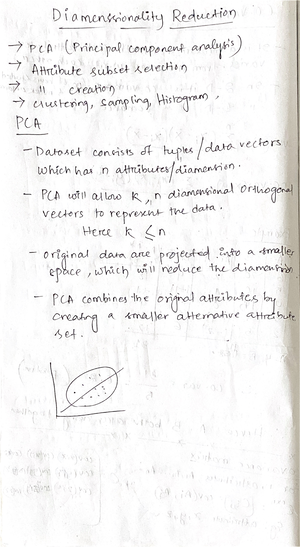 Diamenssionality Reduction
→ PCA (Principal component analysis)
→ Attribute subset selection
→ 〃 creation
→ clustering, sampling, Histogram.
PCA
- Dataset consists of tuples/data vectors
which has n attributes/diamension.
- PCA will allow k, n diamensional orthogonal
vectors to represent the data.
Here k ≤ n
- original data are projected into a smaller
space, which will reduce the diamension
- PCA combines the orignal attributes by
creating a smaller alternative attribute
set.